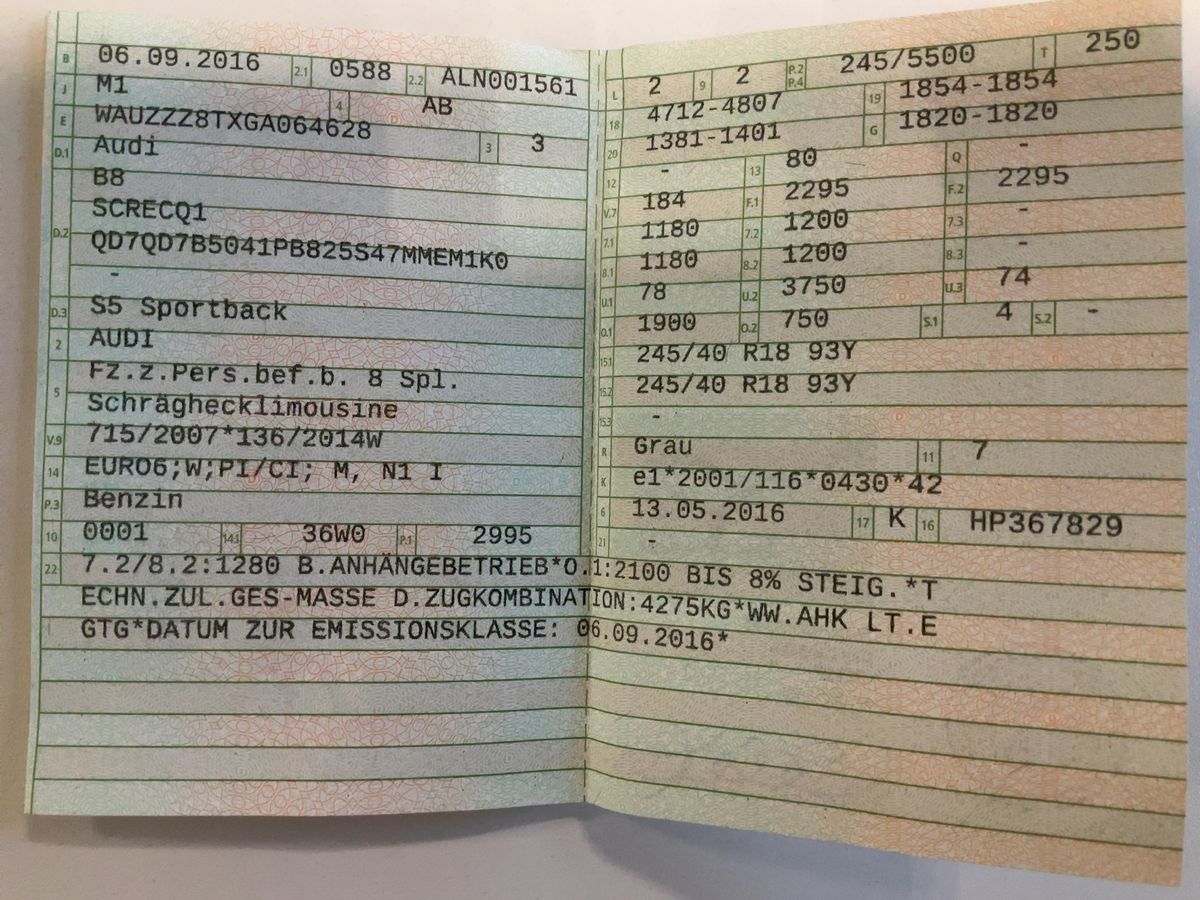 B 06.09.2016 2.1 0588 2.2 ALN001561
J M1 4 AB
E WAUZZZ8TXGA064628 3 3
D.1 Audi
D.2 B8
SCRECQ1
QD7QD7B5041PB825S47MMEM1K0
-
D.3 S5 Sportback
2 AUDI
5 Fz.z.Pers.bef.b. 8 Spl.
Schräghecklimousine
V.9 715/2007*136/2014W
14 EURO6;W;PI/CI; M, N1 I
P.3 Benzin
10 0001 14.1 36W0 P.1 2995
L 2 9 2 P.2 P.4 245/5500 T 250
18 4712-4807 19 1854-1854
20 1381-1401 G 1820-1820
12 - 13 80 Q -
V.7 184 F.1 2295 F.2 2295
7.1 1180 7.2 1200 7.3 -
8.1 1180 8.2 1200 8.3 -
U.1 78 U.2 3750 U.3 74
O.1 1900 O.2 750 S.1 4 S.2 -
15.1 245/40 R18 93Y
15.2 245/40 R18 93Y
15.3 -
R Grau 11 7
K e1*2001/116*0430*42
6 13.05.2016 17 K 16 HP367829
21 -
22 7.2/8.2:1280 B.ANHÄNGEBETRIEB*O.1:2100 BIS 8% STEIG.*T
ECHN.ZUL.GES-MASSE D.ZUGKOMBINATION:4275KG*WW.AHK LT.E
GTG*DATUM ZUR EMISSIONSKLASSE: 06.09.2016*